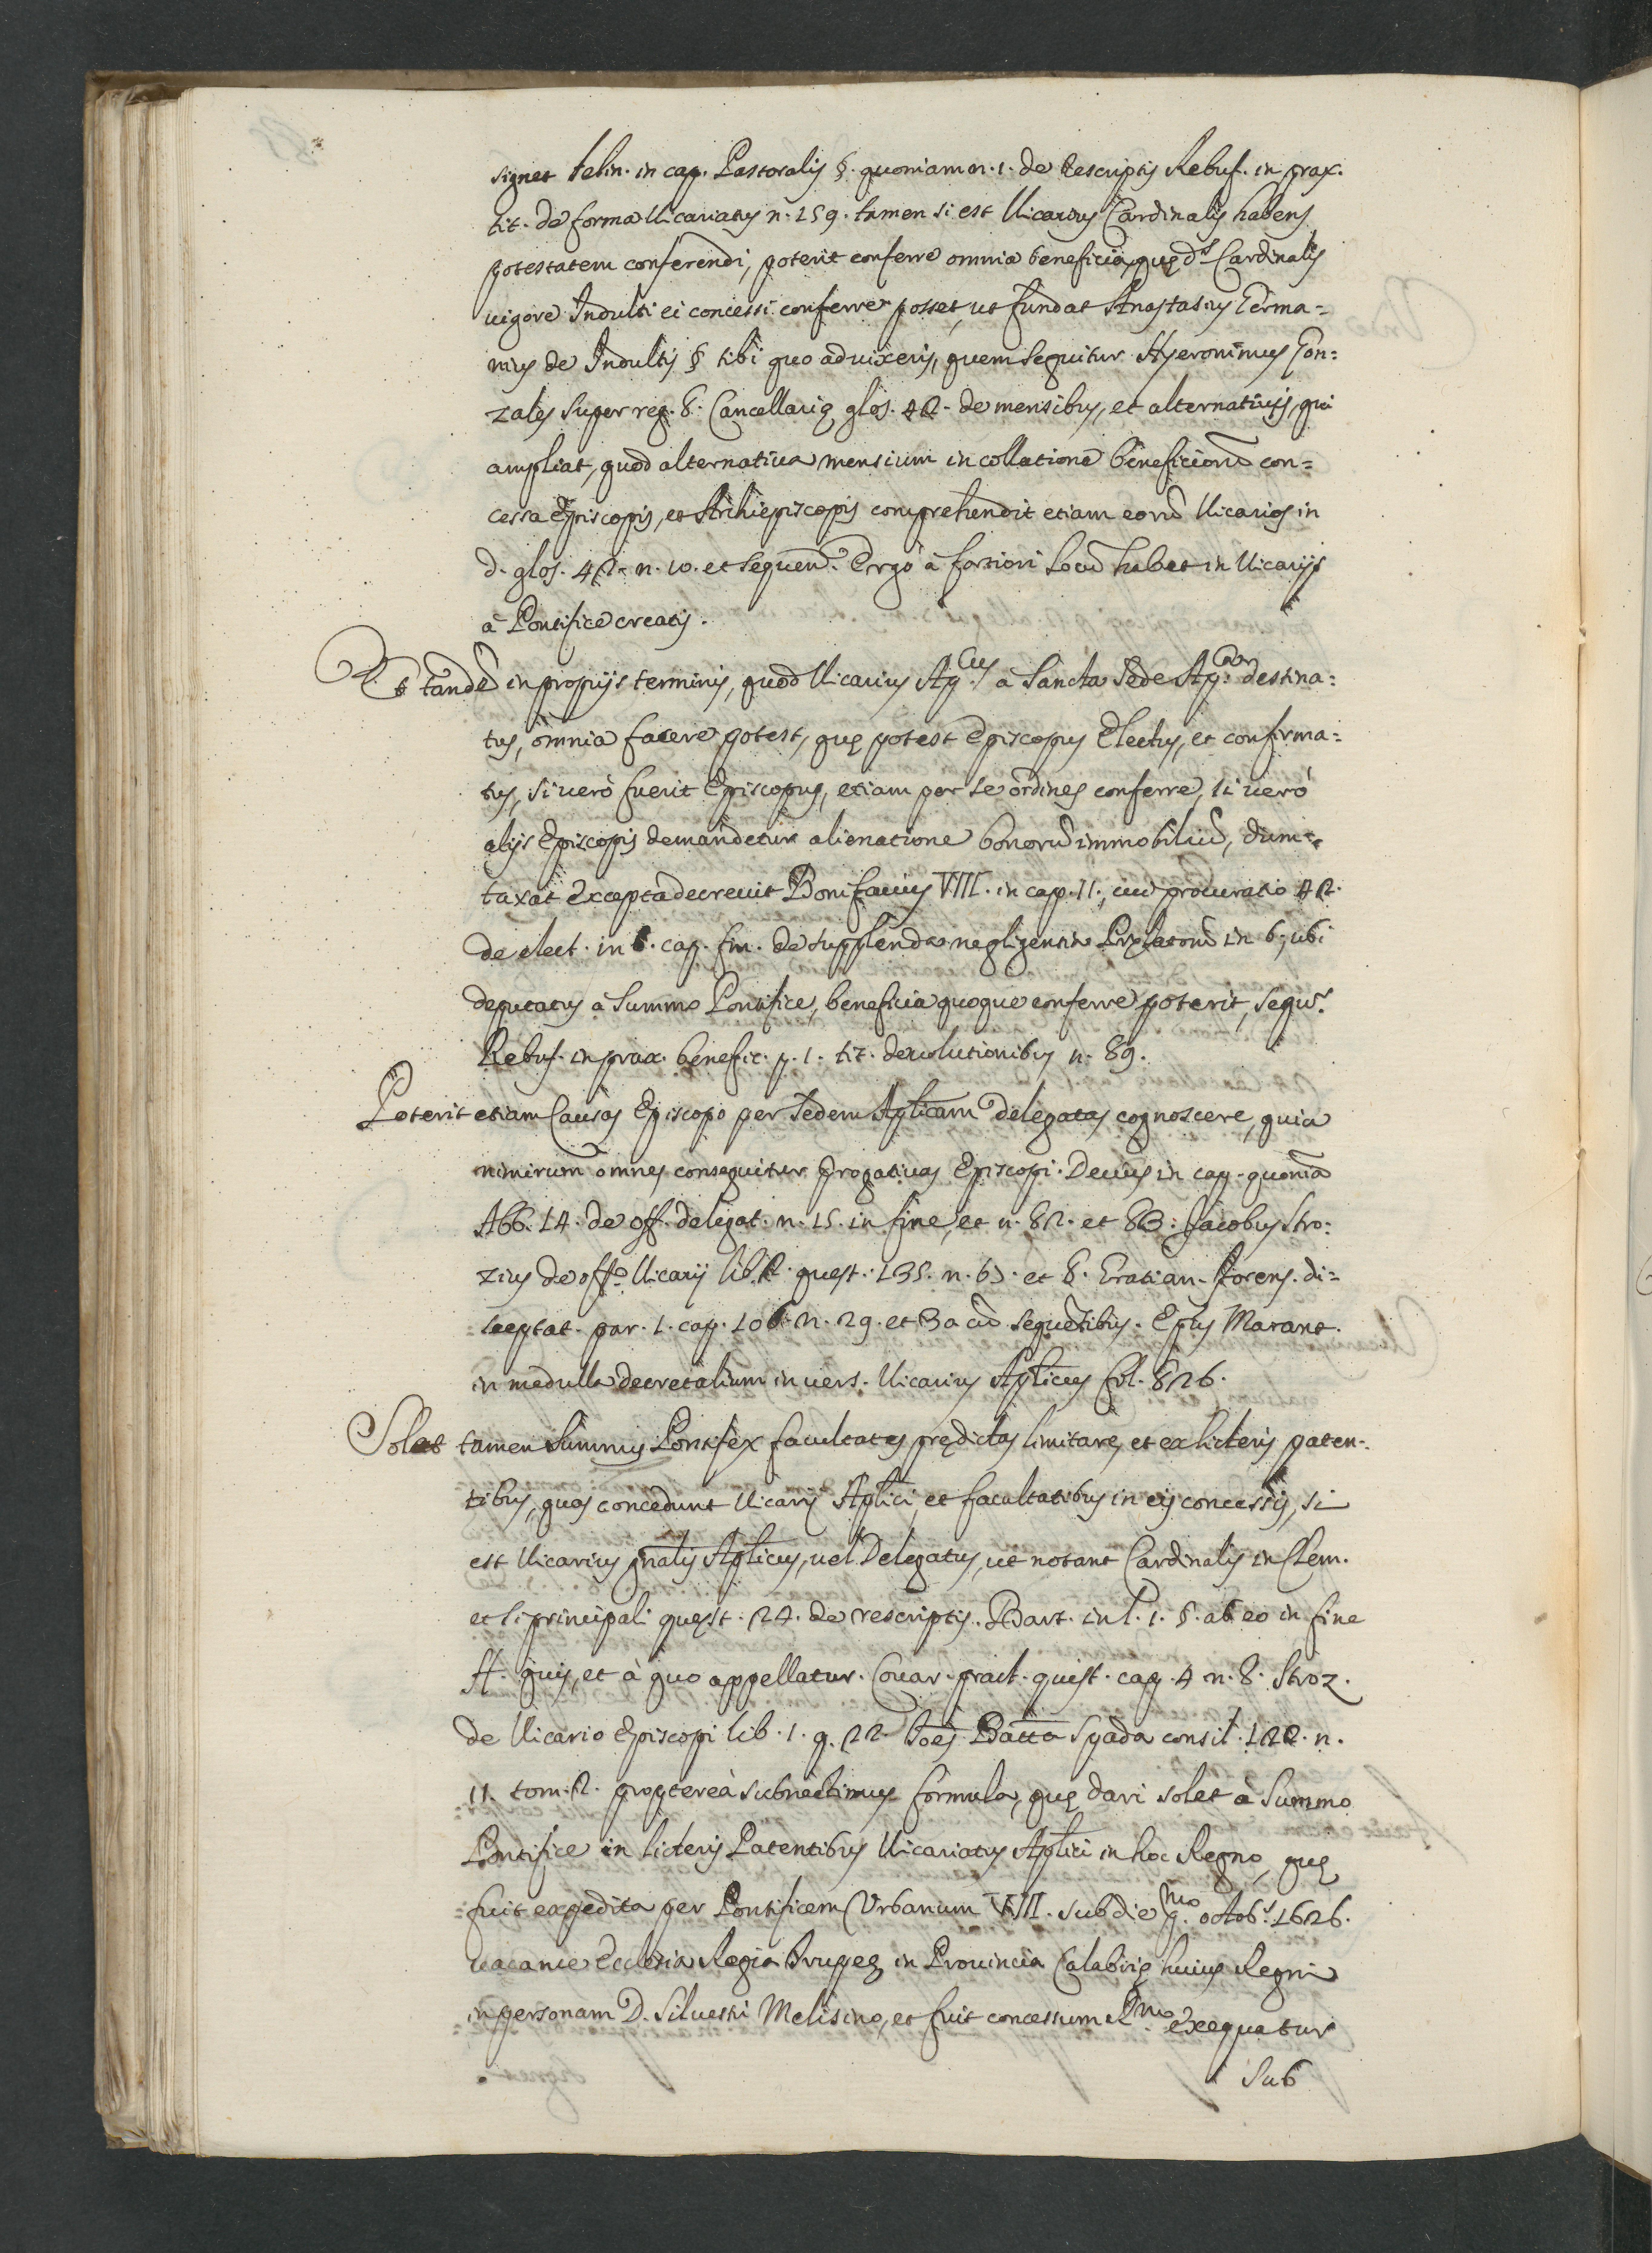 signet Felin. in cap. Pastoralis §. quoniam n. 1. de Rescriptis Rebuf. in prax.
tit. de forma Vicariatus n. 159. tamen si est Vicarius Cardinalis habens
potestatem conferendi, poterit conferre omnia beneficia, quę ds. Cardinalis
uigore Indulti ei concessi conferre posset, ut fundat Anastasius Germa=
nius de Indultis § tibi quo aduixeris, quem sequitur Hyeronimus Gon=
zales super reg. 8. Cancellarię glos. 42. de mensibus, et alternatiuis, qui
ampliat, quod alternatiua mensium in collatione beneficiorũ con=
cessa Episcopis, et Archiepiscopis comprehendit etiam eorũ Vicarios in
d. glos. 42. n. 10. et sequen. Ergo à fortiori locũ habet in Vicarijs
à Pontifice creatis.
Et tandẽ in proprijs terminis, quod Vicarius Ap.cus à Sancta Sede Ap. destina=
tus, omnia facere potest, quę potest Episcopus Electus, et confirma=
tus, si uerò fuerit Episcopus, etiam per se ordines conferre, si uerò
alijs Episcopis demandetur alienatione bonorũ immobiliũ, dum=
taxat excepta decreuit Bonifacius VIII. in cap. 11. cui procuratio 42.
de elect. in 6. cap. fin. de supplenda negligentia Prælatorũ in 6. ubi
deputatus à Summo Pontifice, beneficia quoque conferre poterit, sequr.
Rebuf. in prax. benefic. p. 1. tit. deuolutionibus n. 89.
Poterit etiam Causas Episcopo per Sedem Aplicam delegatas cognoscere, quia
nimirum omnes consequitur prrogatiuas Episcopi. Decius in cap. quoniã
Abb. 14. de off. delegat. n. 15. in fine, et n. 82. et 83. Jacobus Stro=
zius de offo. Vicarij lib. 2. quęst. 135. n. 63. et 8. Gratian. Forens. di=
sceptat. par. 1. cap. 106. n. 29. et 30 cũ sequẽtibus. Epus Marant.
in medulla decretalium in uers. Vicarius Aplicus fol. 826.
Solet tamen Summus Pontifex facultates prędictas limitare, et ex licteris paten=
tibus, quas concedunt Vicarij Aplici, et facultatibus in eis concessis, si
est Vicarius gnalis Aplicus, uel Delegatus, ut notant Cardinalis in Clem.
et si principali quęst. 24. de rescriptis. Bart. in l. 1. §. ab eo in fine
ff. quis, et à quo appellatur. Couar. pract. quęst. cap. 4 n. 8. Stroz.
de Vicario Episcopi lib. 1. q. 22. Ioẽs Batta Spada consil. 122. n.
11. tom. 2. propterea subnectimus formula, quę dari solet à Summo
Pontifice in licteris Patentibus Vicariatus Aplici in hoc Regno, quę
fuit expedita per Pontificem Urbanum VIII. sub die p.mo octobs. 1626.
uacante Ecclesia Regia in Prouincia Calabrię huius Regni
in personam D. Siluestri Melisino, et fuit concessum R.mo exequatur
Sub